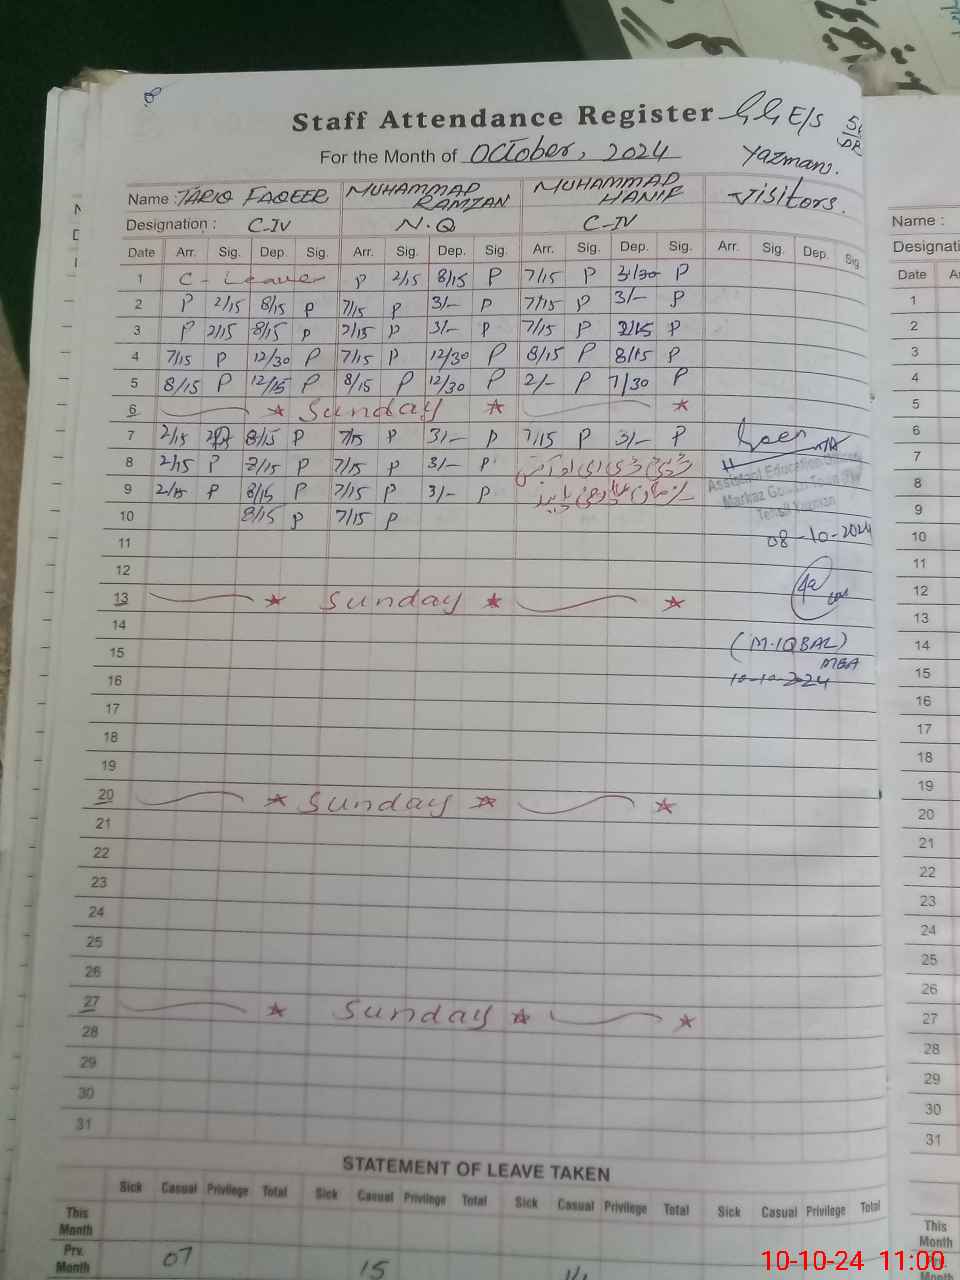 Staff Attendance Register G.G.E/S
For the Month of October, 2024 Yazman.
Name : TARIQ FAQEER MUHAMMAD RAMZAN MUHAMMAD HANIF Visitors.
Designation : C-IV N.Q C-IV
Date Arr. Sig. Dep. Sig. Arr. Sig. Dep. Sig. Arr. Sig. Dep. Sig. Arr. Sig. Dep. Sig.
1 C-Leave P 2/15 8/15 P 7/15 P 3/30 P
2 P 2/15 8/15 P 7/15 P 3/- P 7/15 P 3/- P
3 P 2/15 8/15 P 7/15 P 3/- P 7/15 P P
4 7/15 P 12/30 P 7/15 P 12/30 P 8/15 P 8/15 P
5 8/15 P 12/15 P 8/15 P 12/30 P 2/- P 7/30 P
6 Sunday
7 2/15 8/15 P 7/15 P 3/- P 7/15 P 3/- P
8 2/15 P 7/15 P 7/15 P 3/- P
9 2/15 P 8/15 P 7/15 P 3/- P
10 8/15 P 7/15 P
Assistant Education
Markaz
Tehsil Yazman
08-10-2024
11
12
13 Sunday
14
15
(M.IQBAL)
MEA
16 10-10-2024
17
18
19
20 Sunday
21
22
23
24
25
26
27 Sunday
28
29
30
31
STATEMENT OF LEAVE TAKEN
Sick Casual Privilege Total Sick Casual Privilege Total Sick Casual Privilege Total Sick Casual Privilege Total
This Month
Prv. Month 07 15
Name :
Date
1
2
3
4
5
6
7
8
9
10
11
12
13
14
15
16
17
18
19
20
21
22
23
24
25
26
27
28
29
30
31
This Month
10-10-24 11:00